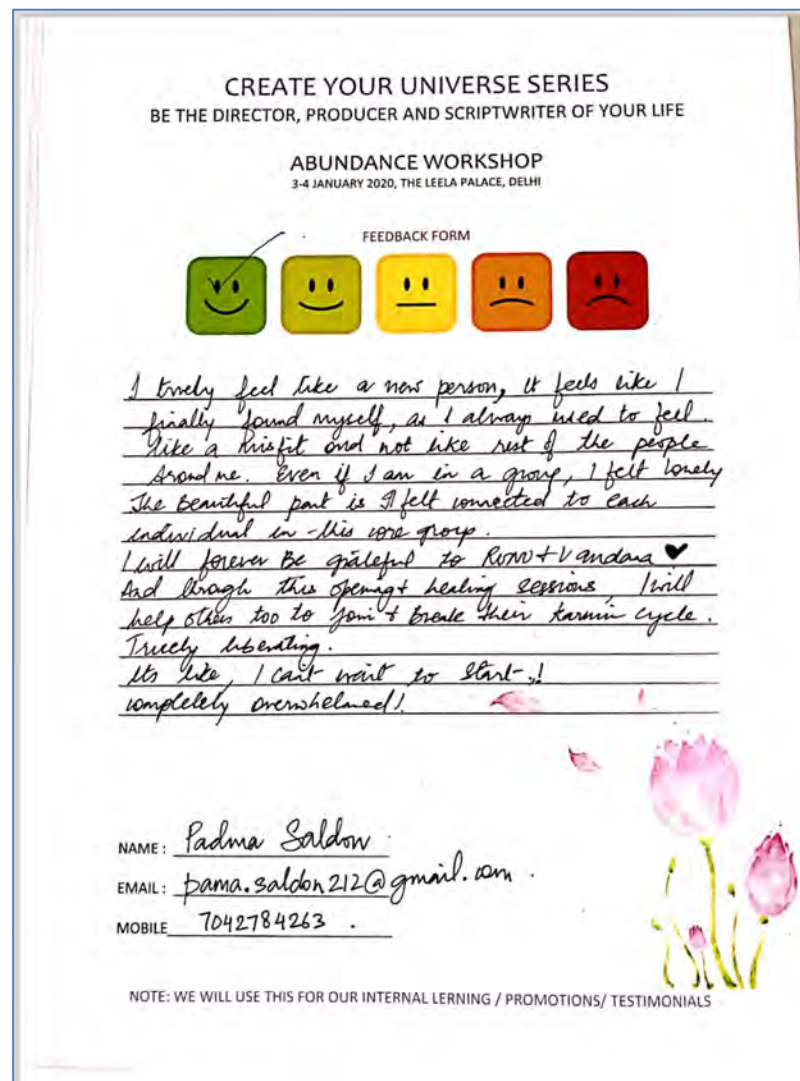 CREATE YOUR UNIVERSE SERIES
BE THE DIRECTOR, PRODUCER AND SCRIPTWRITER OF YOUR LIFE
ABUNDANCE WORKSHOP
3-4 JANUARY 2020, THE LEELA PALACE, DELHI
FEEDBACK FORM
I truely feel like a new person, it feels like I
finally found myself, as I always used to feel
like a misfit and not like rest of the people
around me. Even if I am in a group, I felt lonely
The Beautiful part is I felt connected to each
individual in this core group.
I will forever Be grateful to + Vandana ♥
And through this opening + healing sessions, I will
help others too to join + Break their karmic cycle.
Truely liberating.
Its like, I cant wait to start..!
completely overwhelmed!
NAME: Padma Saldon
EMAIL: pama.saldon212@gmail.com
MOBILE 7042784263
NOTE: WE WILL USE THIS FOR OUR INTERNAL LERNING / PROMOTIONS/ TESTIMONIALS